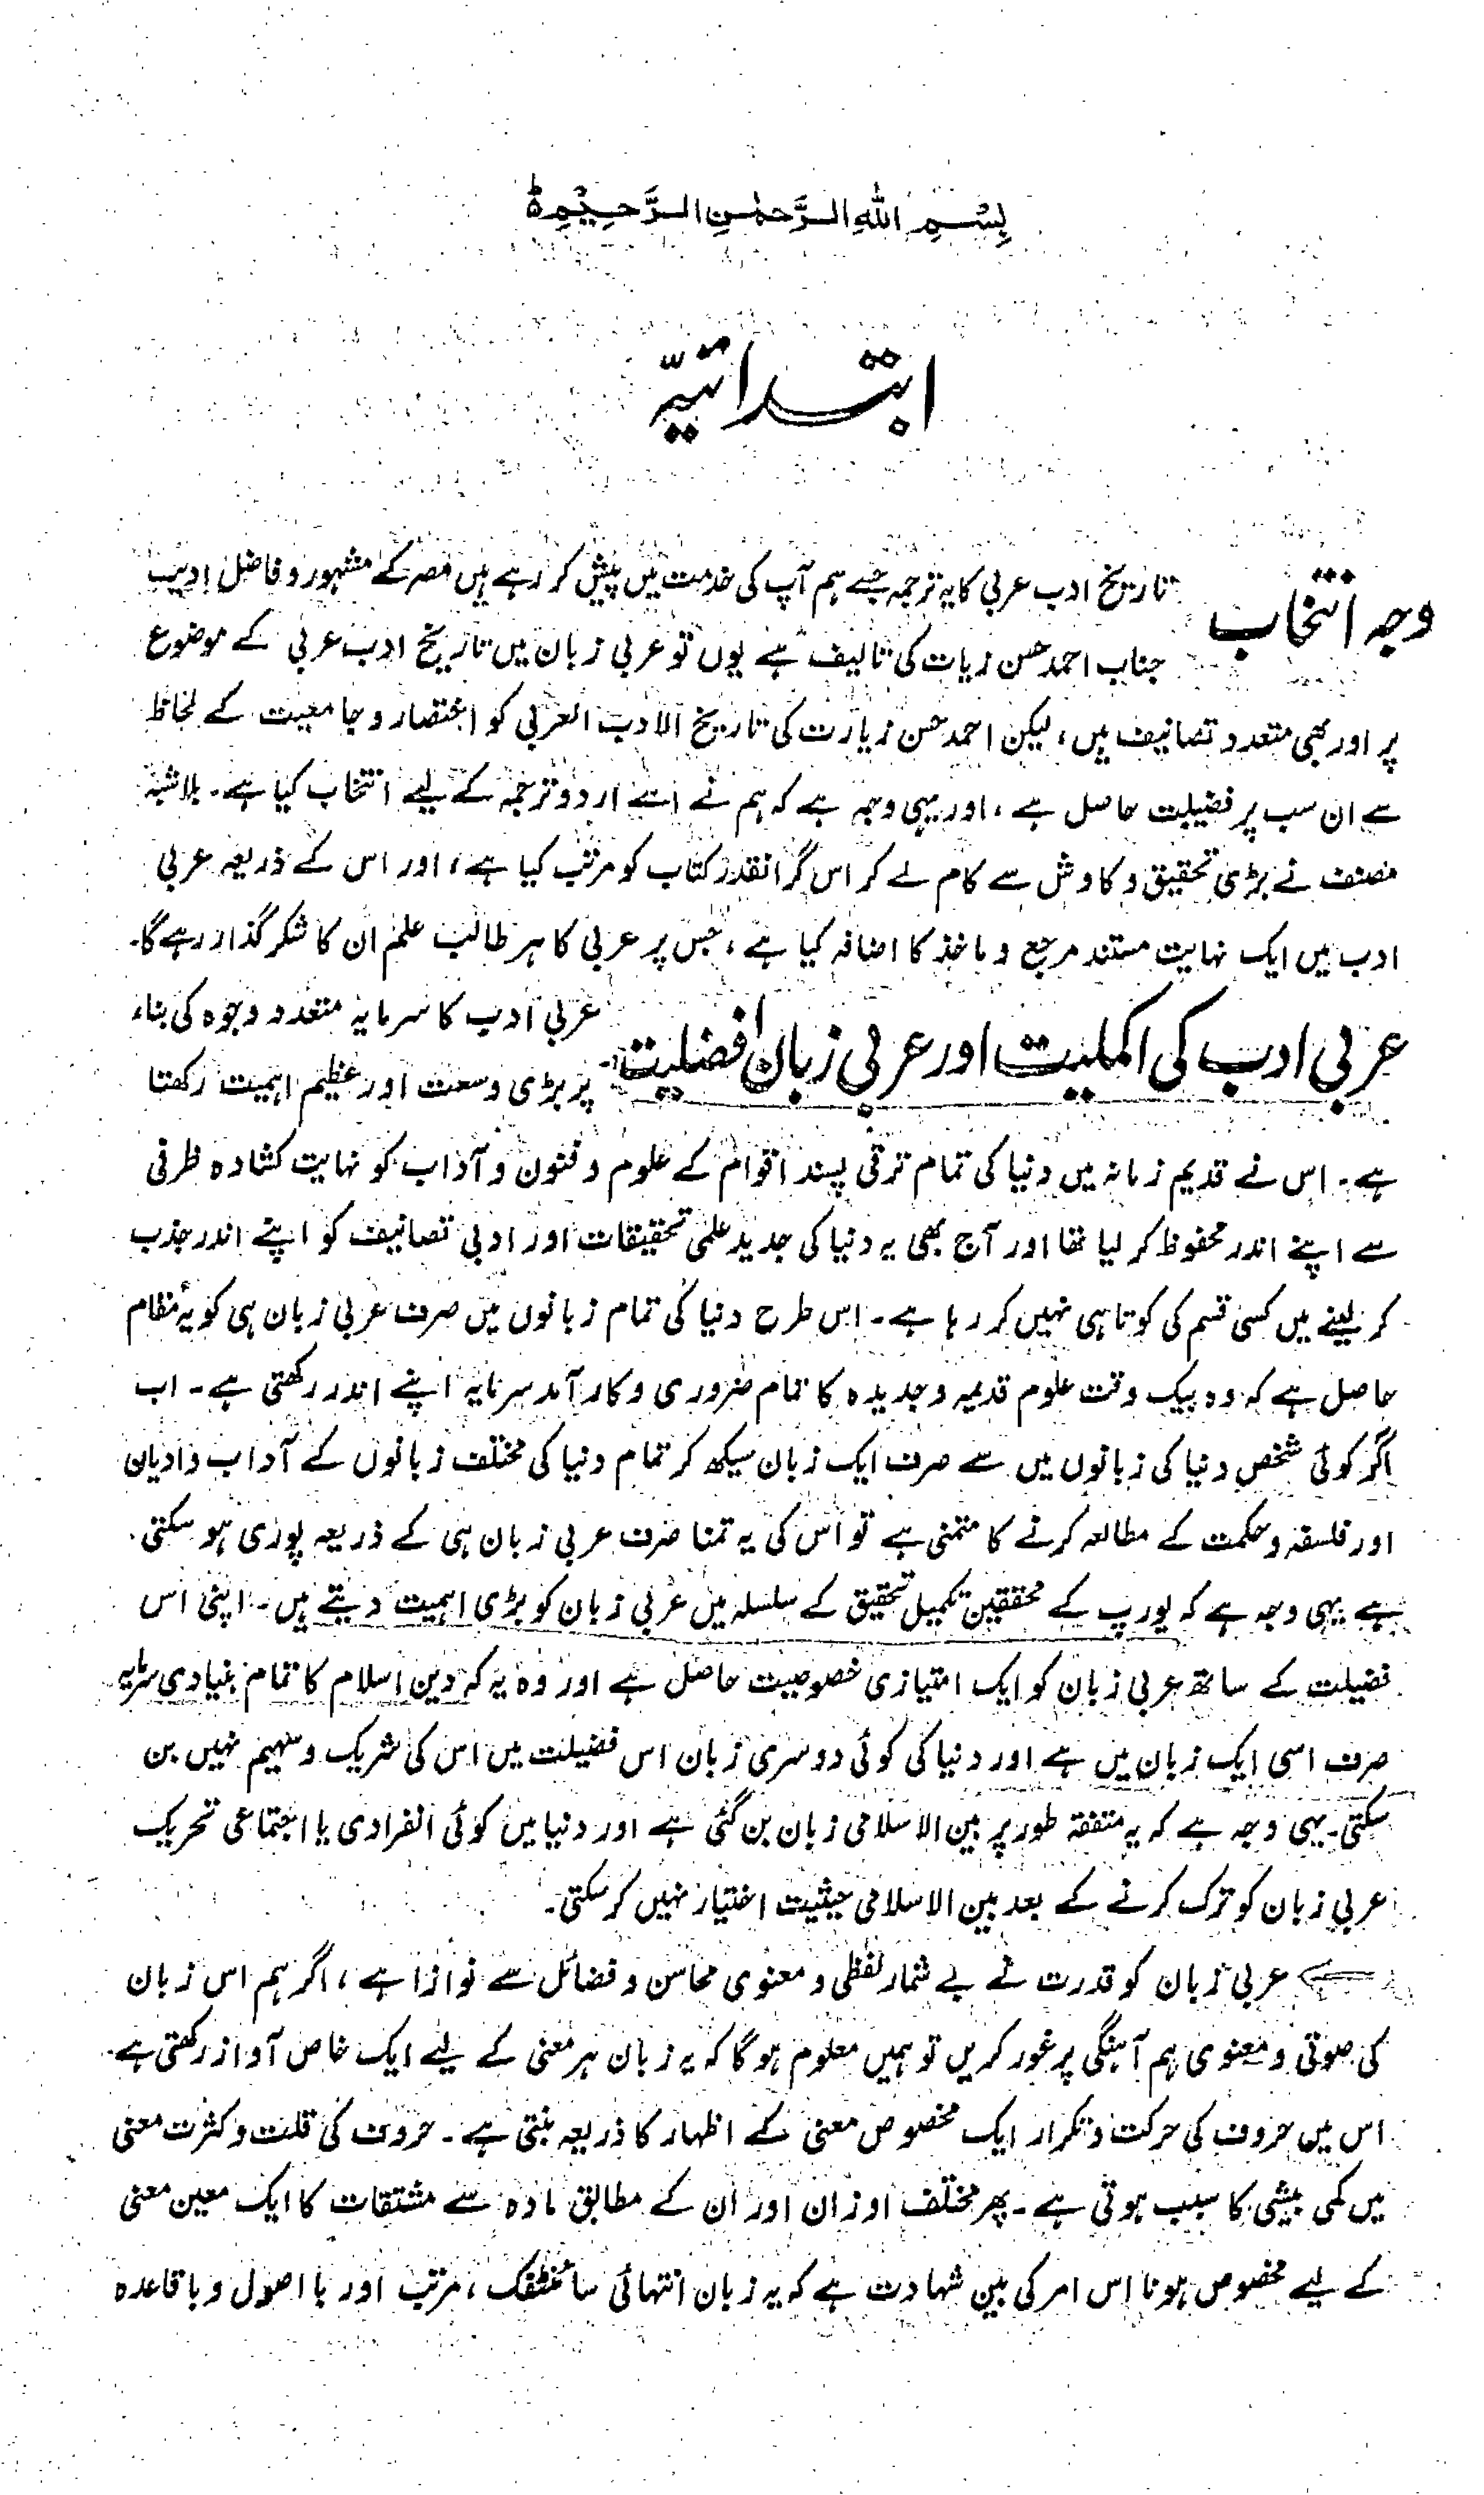 بِسْمِ اللهِ الرَّحمٰنِ الرَّحِیْمِ ط
ابتدائیہ
وجہ انتخاب
تاریخ ادب عربی کا یہ ترجمہ جسے ہم آپ کی خدمت میں پیش کر رہے ہیں مصر کے مشہور و فاضل ادیب
جناب احمد حسن زیات کی تالیف ہے یوں تو عربی زبان میں تاریخ ادب عربی کے موضوع
پر اور بھی متعدد تصانیف ہیں، لیکن احمد حسن زیارت کی تاریخ الادب العربی کو اختصار و جامعیت کے لحاظ
سے ان سب پر فضیلت حاصل ہے، اور یہی وجہ ہے کہ ہم نے اسے اردو ترجمہ کے لیے انتخاب کیا ہے۔ بلاشبہ
مصنف نے بڑی تحقیق و کاوش سے کام لے کر اس گرانقدر کتاب کو مرتب کیا ہے، اور اس کے ذریعہ عربی
ادب میں ایک نہایت مستند مرجع و ماخذ کا اضافہ کیا ہے، جس پر عربی کا ہر طالب علم ان کا شکر گذار رہے گا۔
عربی ادب کی اکملیت اور عربی زبان افضلیت
عربی ادب کا سرمایہ متعدد وجوہ کی بناء
پر بڑی وسعت اور عظیم اہمیت رکھتا
ہے۔ اس نے قدیم زمانہ میں دنیا کی تمام ترقی پسند اقوام کے علوم و فنون و آداب کو نہایت کشادہ ظرفی
سے اپنے اندر محفوظ کر لیا تھا اور آج بھی یہ دنیا کی جدید علمی تحقیقات اور ادبی تصانیف کو اپنے اندر جذب
کر لینے میں کسی قسم کی کوتاہی نہیں کر رہا ہے۔ اس طرح دنیا کی تمام زبانوں میں صرف عربی زبان ہی کو یہ مقام
حاصل ہے کہ وہ بیک وقت علوم قدیمہ و جدیدہ کا تمام ضروری و کارآمد سرمایہ اپنے اندر رکھتی ہے۔ اب
اگر کوئی شخص دنیا کی زبانوں میں سے صرف ایک زبان سیکھ کر تمام دنیا کی مختلف زبانوں کے آداب و ادیان
اور فلسفہ و حکمت کے مطالعہ کرنے کا متمنی ہے تو اس کی یہ تمنا صرف عربی زبان ہی کے ذریعہ پوری ہو سکتی
ہے یہی وجہ ہے کہ یورپ کے محققین تکمیل تحقیق کے سلسلہ میں عربی زبان کو بڑی اہمیت دیتے ہیں۔ اپنی اس
فضیلت کے ساتھ عربی زبان کو ایک امتیازی خصوصیت حاصل ہے اور وہ یہ کہ دین اسلام کا تمام بنیادی سرمایہ
صرف اسی ایک زبان میں ہے اور دنیا کی کوئی دوسری زبان اس فضیلت میں اس کی شریک و سہیم نہیں بن
سکتی۔ یہی وجہ ہے کہ یہ متفقہ طور پر بین الاسلامی زبان بن گئی ہے اور دنیا میں کوئی انفرادی یا اجتماعی تحریک
عربی زبان کو ترک کرنے کے بعد بین الاسلامی حیثیت اختیار نہیں کر سکتی۔
عربی زبان کو قدرت نے بے شمار لفظی و معنوی محاسن و فضائل سے نوازا ہے، اگر ہم اس زبان
کی صوتی و معنوی ہم آہنگی پر غور کریں تو ہمیں معلوم ہو گا کہ یہ زبان ہر معنی کے لیے ایک خاص آواز رکھتی ہے۔
اس میں حروف کی حرکت و تکرار ایک مخصوص معنی کے اظہار کا ذریعہ بنتی ہے۔ حروف کی قلت و کثرت معنی
میں کمی بیشی کا سبب ہوتی ہے۔ پھر مختلف اوزان اور ان کے مطابق مادہ سے مشتقات کا ایک معین معنی
کے لیے مخصوص ہونا اس امر کی بین شہادت ہے کہ یہ زبان انتہائی سائنٹفک، مرتب اور با اصول و باقاعدہ